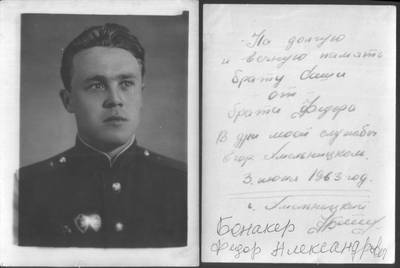 На долгую
и вечную память
брату Саши
от
брата Федора
В дни моей службы
в гор Хмельницком.
3. июня 1963 год.
г. Хмельницкий
Бонакер
Федор Александрович